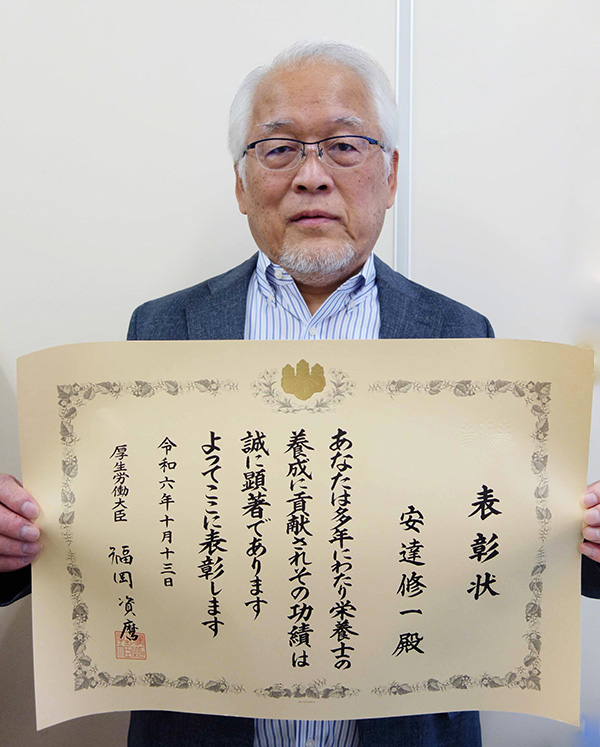 表彰状
安達修一殿
あなたは多年にわたり栄養士の
養成に貢献されその功績は
誠に顕著であります
よってここに表彰します
令和六年十月十三日
厚生労働大臣 福岡資麿